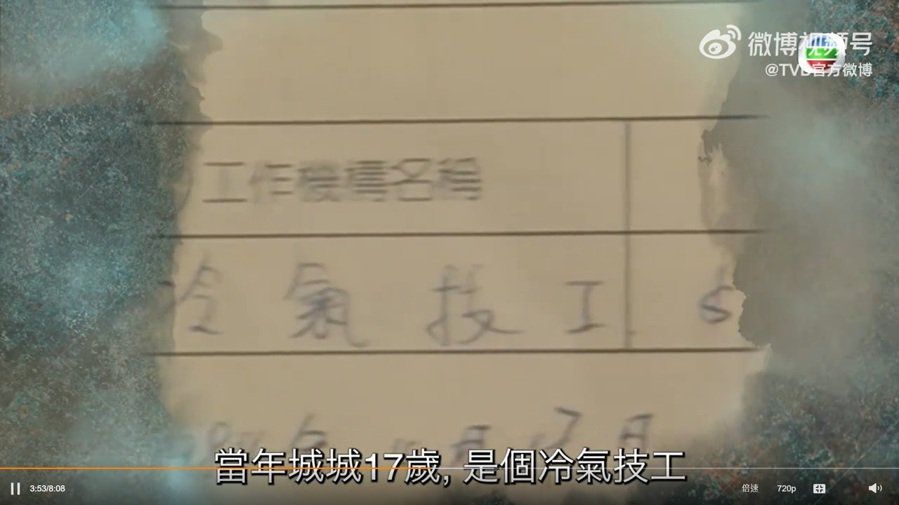 微博视频号
@TVB官方微博
工作機構名稱
冷氣技工
當年城城17歲, 是個冷氣技工
3:53/8:08
倍速
720p